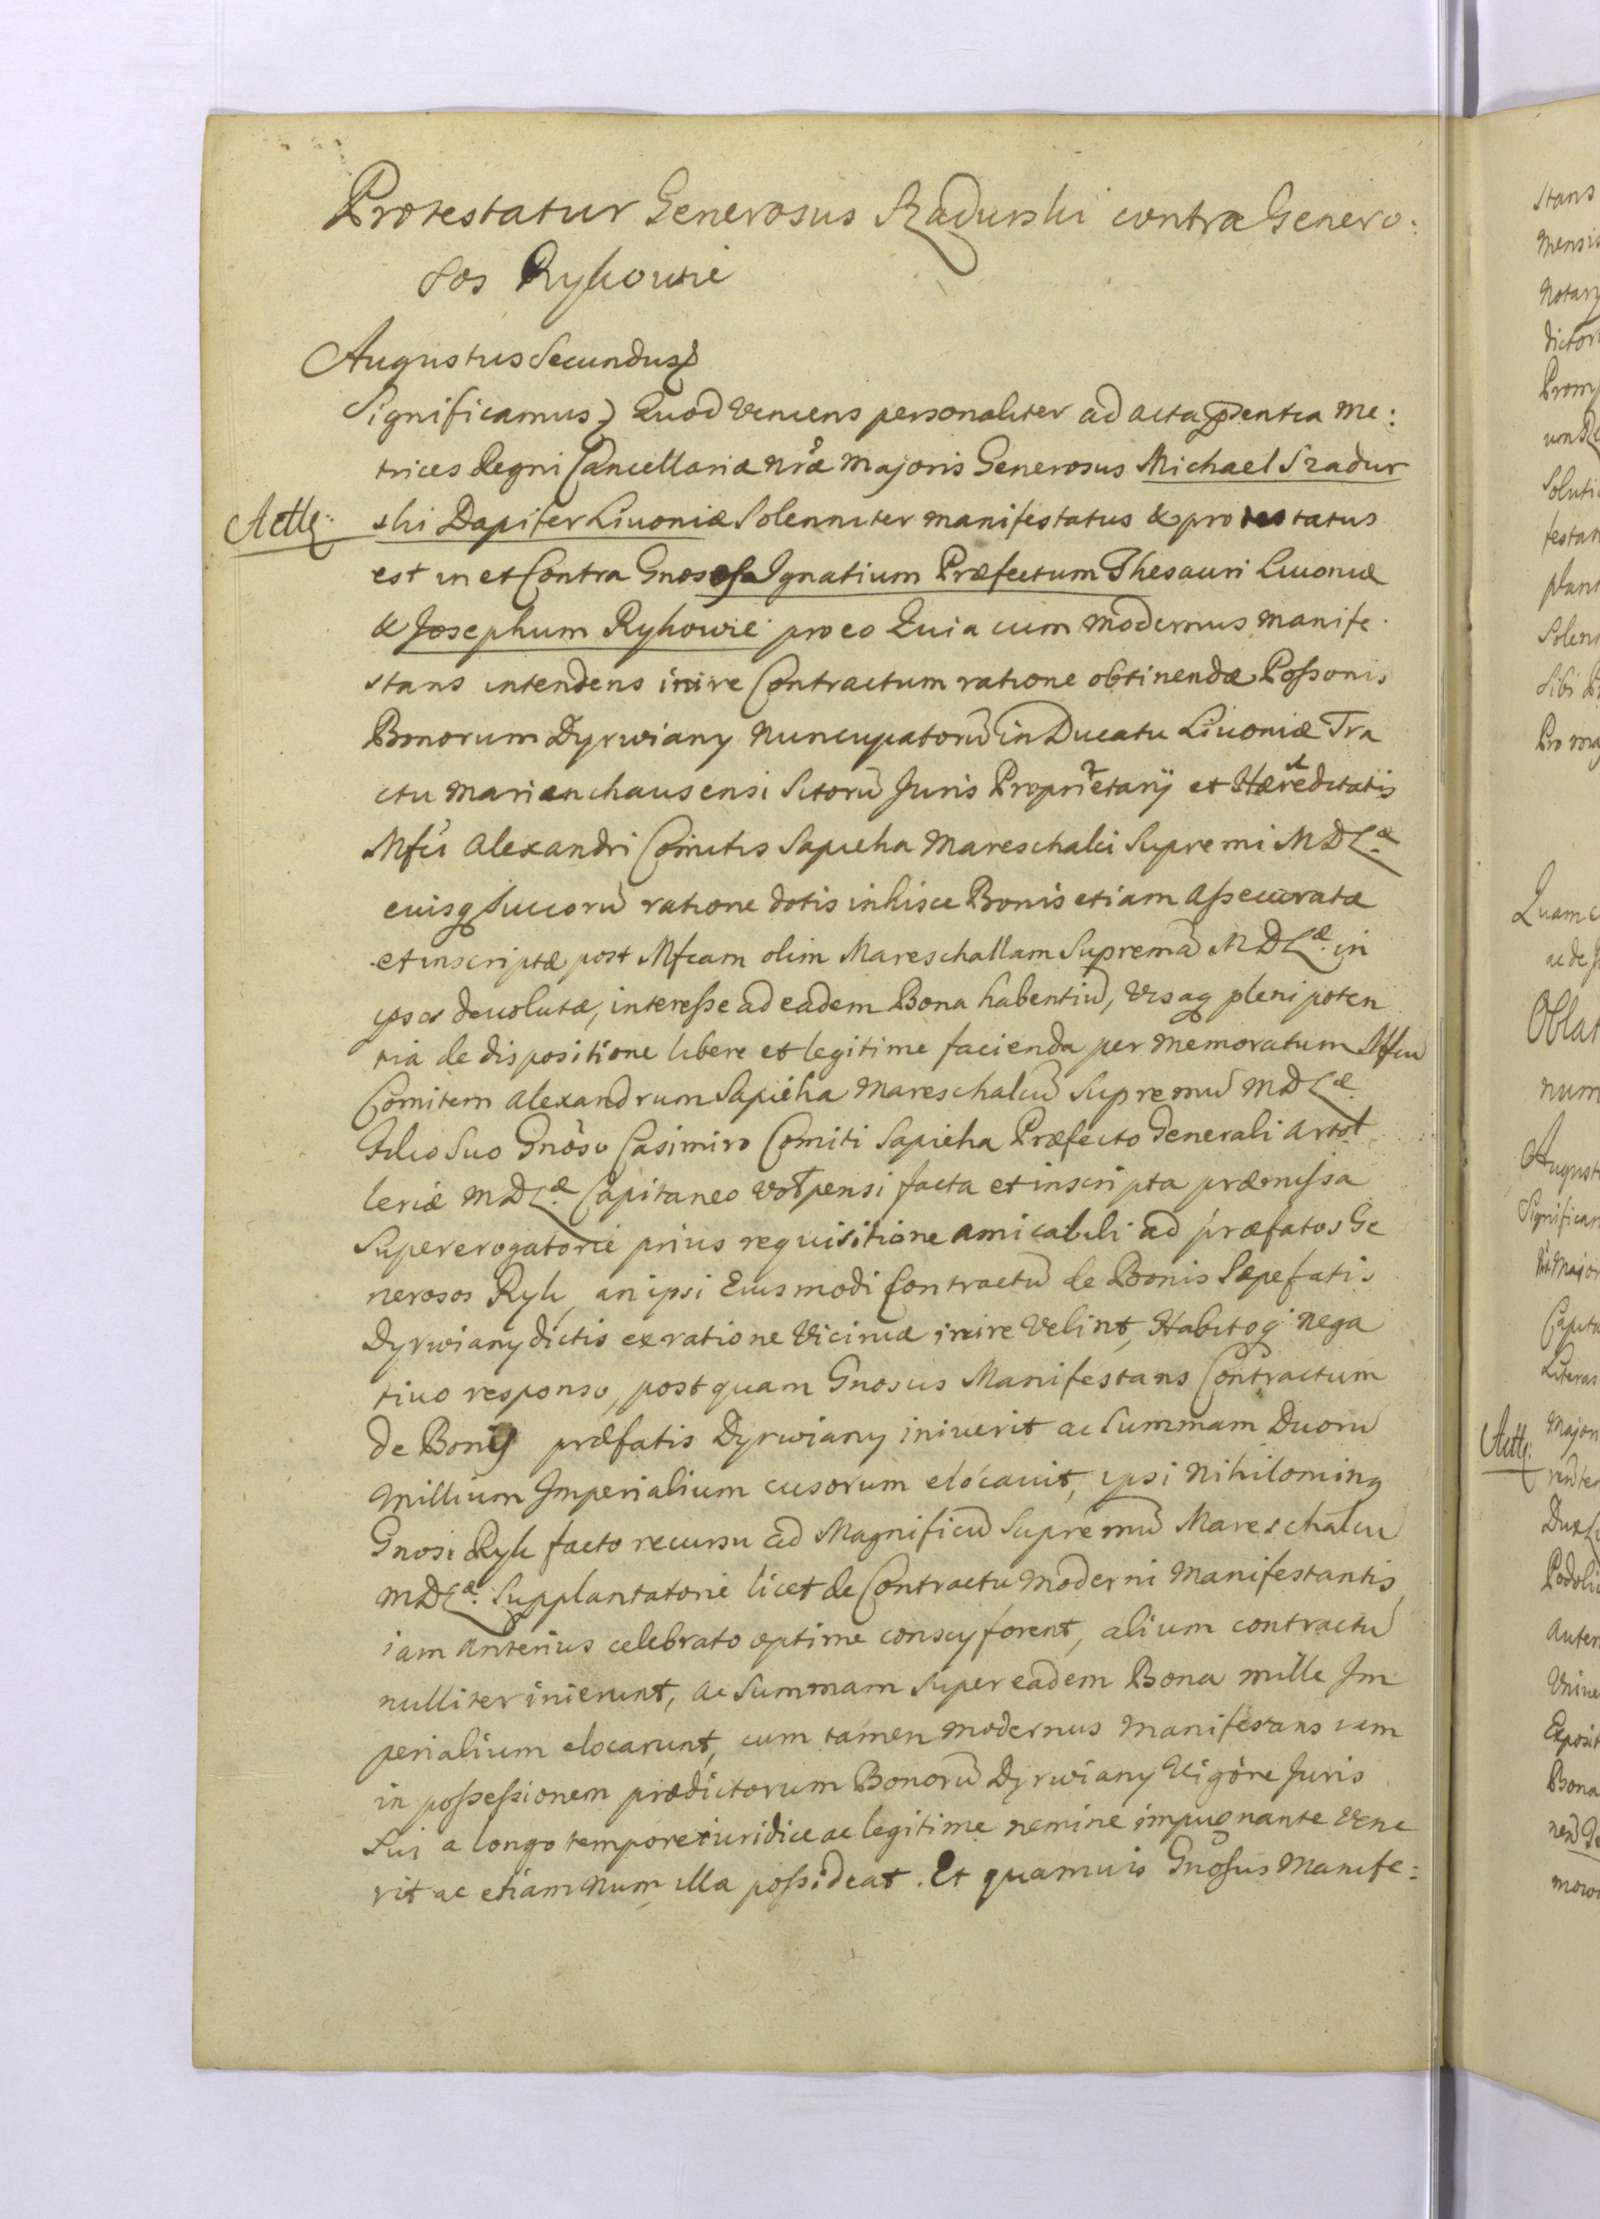 Protestatur Generosus Szadurski contra Genero:
sos Rykowie
Augustus Secundus
Significamus) Quod Veniens personaliter ad acta pñtia Me:
trices Regni Cancellariæ nræ Majoris Generosus Michael Szadur
Actt:
ski Dapifer Livoniæ Solenniter manifestatus & protestatus
est in et Contra Gnosos Ignatium Præfectum Thesauri Livoniæ
& Josephum Rykowie pro eo Quia cum Modernus manife
stans intendens inire Contractum ratione obtinendæ Possonis
Bonorum Dyrwiany nuncupatorũ in Ducatu Livoniæ Tra
ctu Marienchausensi Sitorũ Juris Proprietarÿ et Hæreditatis
Mfci Alexandri Comitis Sapieha Mareschalci Supremi MDLæ
euisq Succorũ ratione dotis in hisce Bonis etiam Assecuratæ
et inscriptæ post Mfcam olim Mareschallam Supremã MDLæ in
ipsos devolutæ, interesse ad eadem Bona habentiũ, Visaq pleni poten
tia de dispositione libere et legitime facienda per Memoratum Mfcũ
Comitem Alexandrum Sapieha Mareschalcũ Supremũ MDLæ
Filio Suo Gnõso Casimiro Comiti Sapieha Præfecto Generali Artol
leriæ MDLæ Capitaneo Wolpensi facta et inscripta præmissa
Supererogatorie prius requisitione amicabili ad præfatos Ge
nerosos Ryk, an ipsi Eiusmodi Contractũ de Bonis Sæpefatis
Dyrwiany dictis ex ratione Viciniæ inire Velint, Habitoq nega
tivo responso, postquam Gnosus Manifestans Contractum
de Bonis præfatis Dyrwiany iniverit ac Summam Duorũ
Millium Imperialium cusorum elocavit, ipsi nihilominq
Gnosi Ryk facto recursu ad Magnificũ Supremũ Mareschalcũ
MDLæ Supplantatorie licet de Contractu Moderni Manifestantis
iam anterius celebrato optime conscÿ forent, alium contractũ
nulliter inierunt, ac Summam Super eadem Bona mille Im
perialium elocarunt, cum tamen Modernus Manifestans iam
in possessionem prædictorum Bonorũ Dyrwiany Vigore Juris
Sui a longo tempore iuridice ac legitime nemine impugnante Vene
rit ac etiam num illa possideat. Et quamvis Gnosus Manife: